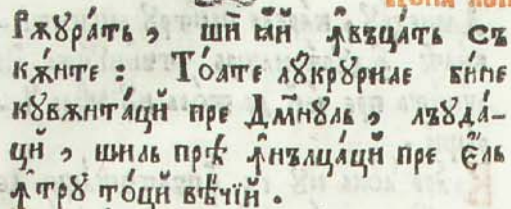 Рѫꙋра́ть , шй ꙗй ꙟвъца́ть съ
кѫ́нте : То́ате лꙋкрꙋриле би́не
кꙋвѫнта́цй пре Дм҃нꙋль , лъꙋда́-
цй , шиль прѣ́ ꙟнълца́цй пре є҆́ль
ꙟтрꙋ то́цй вѣ́чїй .